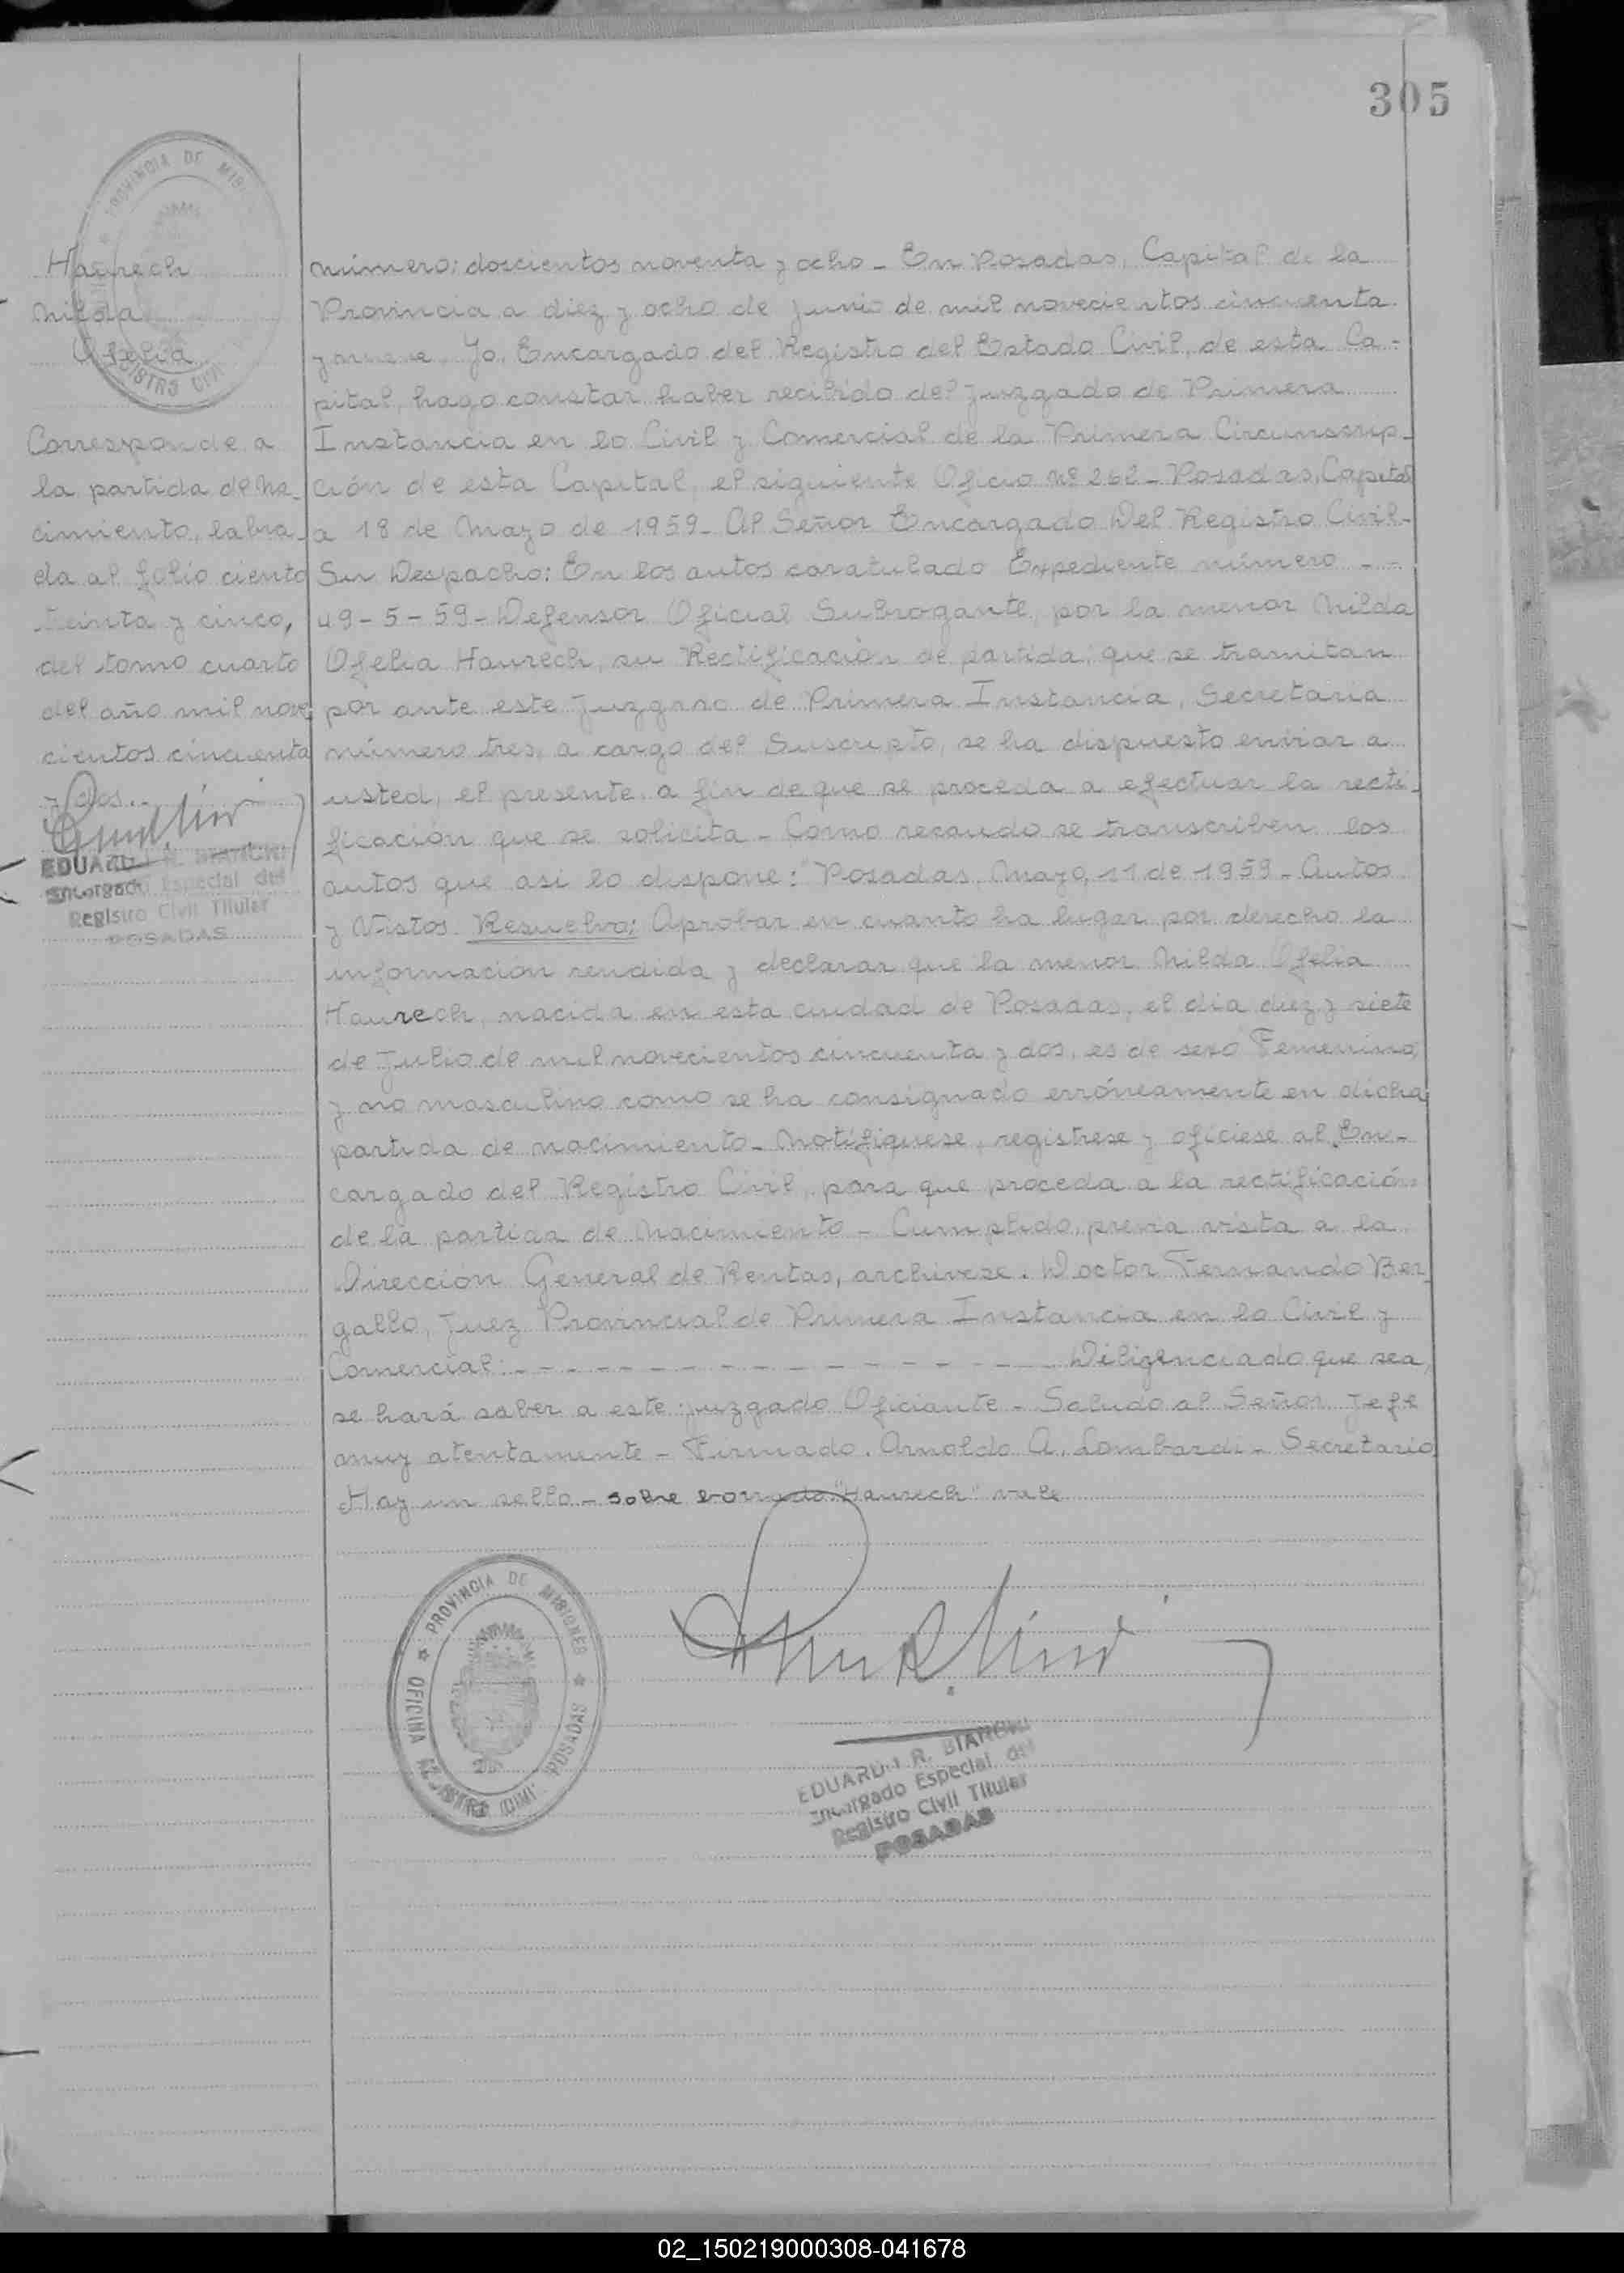 305
PROVINCIA DE MIS
REGISTRO CIVIL
Haurech
Nilda
Ofelia
Corresponde a
la partida de Na-
cimiento, labra-
da al folio ciento
treinta y cinco,
del tomo cuarto
del año mil nove
cientos cincuenta
y dos.-
EDUARDO R. BIANCHI
Encargado Especial del
Registro Civil Titular
POSADAS
Número: doscientos noventa y ocho - En Posadas, Capital de la
Provincia a diez y ocho de Junio de mil novecientos cincuenta
y nueve. Yo, Encargado del Registro del Estado Civil, de esta Ca-
pital, hago constar haber recibido del Juzgado de Primera
Instancia en lo Civil y Comercial de la Primera Circunscrip-
ción de esta Capital, el siguiente Oficio Nº 262 - Posadas, Capital
a 18 de Mayo de 1959 - Al Señor Encargado Del Registro Civil -
Su Despacho: En los autos caratulado Expediente número - -
49 - 5 - 59 - Defensor Oficial Subrogante, por la menor Nilda
Ofelia Haurech, su Rectificación de partida, que se tramitan
por ante este Juzgado de Primera Instancia, Secretaria
número tres, a cargo del Suscripto, se ha dispuesto enviar a
usted, el presente, a fin de que se proceda a efectuar la recti-
ficación que se solicita - Como recaudo se transcriben los
autos que asi lo dispone: "Posadas, Mayo, 11 de 1959 - Autos
y Vistos Resuelvo: Aprobar en cuanto ha lugar por derecho la
información rendida y declarar que la menor Nilda Ofelia
Haurech, nacida en esta ciudad de Posadas, el dia diez y siete
de Julio de mil novecientos cincuenta y dos, es de sexo Femenino,
y no masculino como se ha consignado erróneamente en dicha
partida de nacimiento - Notifíquese, registrese y ofíciese al En-
cargado del Registro Civil, para que proceda a la rectificación
de la partida de Nacimiento - Cumplido, previa vista a la
Dirección General de Rentas, archivese. Doctor Fernando Ber-
gallo, Juez Provincial de Primera Instancia en lo Civil y
Comercial: - - - - - - - - - - - - - - - - Diligenciado que sea,
se hará saber a este juzgado Oficiante - Saludo al Señor Jefe
muy atentamente - Firmado. Arnoldo A. Lombardi - Secretario
Hay un sello - sobre borrado "Haurech" vale
PROVINCIA DE MISIONES
OFICINA REGISTRO CIVIL POSADAS
EDUARDO R. BIANCHI
Encargado Especial del
Registro Civil Titular
POSADAS
02_150219000308-041678